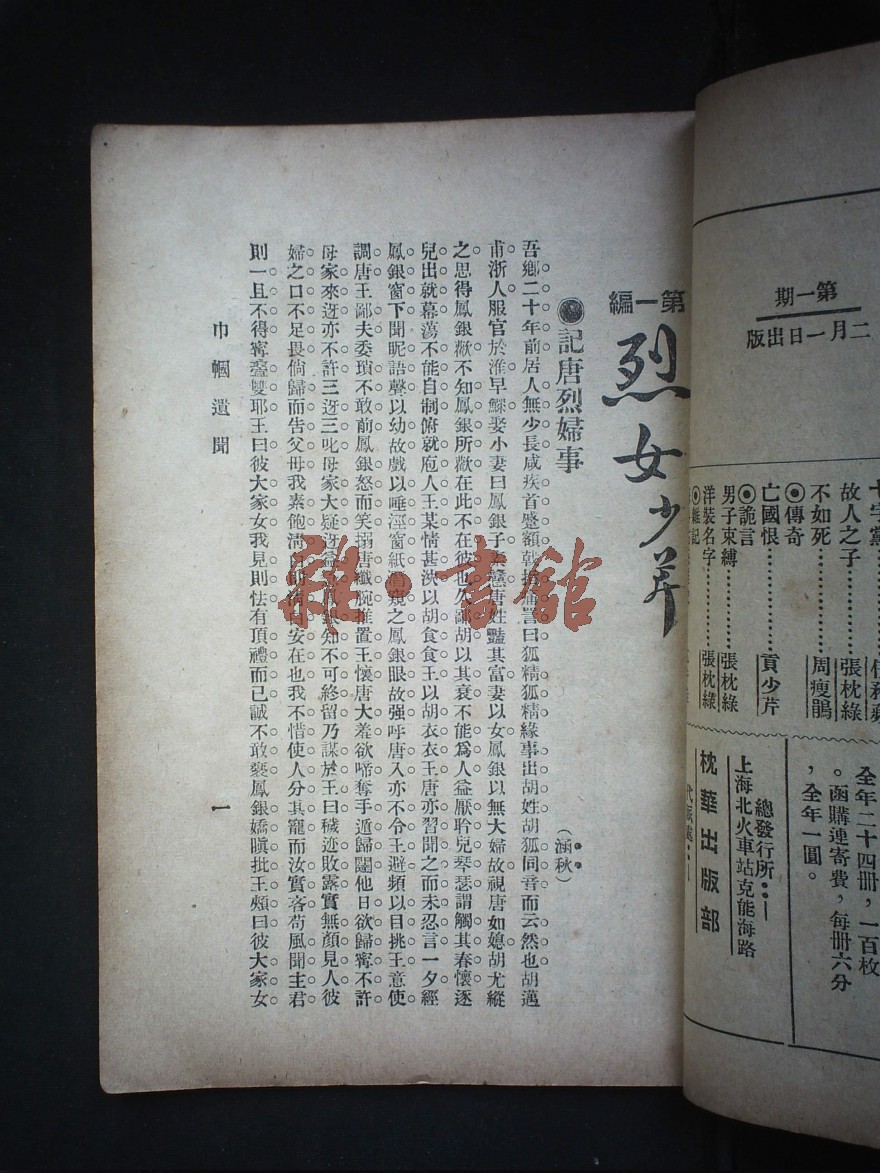 第一期
二月一日出版
故人之子⋯⋯⋯張枕綠
不如死⋯⋯⋯周瘦鵑
◉傳奇
亡國恨⋯⋯⋯貢少芹
◉詭言
男子束縛⋯⋯⋯張枕綠
洋裝名字⋯⋯⋯張枕綠
全年二十四册，一百枚
。函購連寄費，每册六分
，全年一圓。
總發行所：—
上海北火車站克能海路
枕華出版部
第一編
烈女少芹
記唐烈婦事
（涵秋）
吾鄉二十年前居人無少長咸疾首蹙額戟指痛詈曰狐精狐精緣事出胡姓胡狐同音而云然也胡邁
甫浙人服官於淮早鰥娶小妻曰鳳銀子唐姓豔其富妻以女鳳銀以無大婦故視唐如媳胡尤縱
之思得鳳銀歡不知鳳銀所歡在此不在彼也久鄙胡以其衰不能爲人益厭聆兒琴瑟謂觸其春懷逐
兒出就幕蕩不能自制俯就庖人王某情甚浹以胡食食王以胡衣衣王唐亦習聞之而未忍言一夕經
鳳銀窗下聞昵語聲以幼故戲以唾溼窗紙窺之鳳銀眼故强呼唐入亦不令王避頻以目挑王意使
調唐王鄙夫委瑣不敢前鳳銀怒而笑搦唐纖腕推置王懷唐大羞欲啼奪手遁歸闥他日欲歸寧不許
母家來迓亦不許三迓三叱母家大疑迓益銀知不可終留乃謀於王曰穢迹敗露實無顏見人彼
婦之口不足畏倘歸而告父母我素飽淸安在也我不惜使人分其寵而汝實吝苟風聞主君
則一且不得寧雙耶王曰彼大家女我見則怯有頂禮而已誠不敢褻鳳銀嬌瞋批王頰曰彼大家女
巾幗遺聞
一
雜·書館